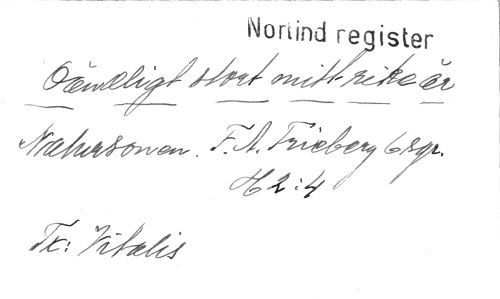 Norlind register
Oändligt stort mitt rike är
Natursonen. F. A. Frieberg 6 sgr.
H 2:4
Tx: Vitalis